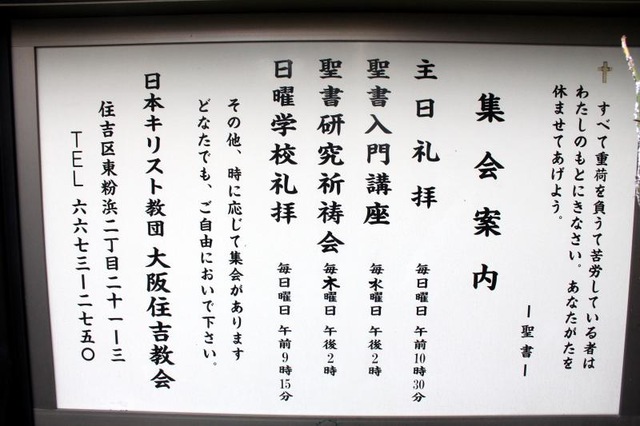 すべて重荷を負うて苦労している者は
わたしのもとにきなさい。あなたがたを
休ませてあげよう。
ー聖書ー
集会案内
主日礼拝 毎日曜日 午前10時30分
聖書入門講座 毎水曜日 午後2時
聖書研究祈祷会 毎木曜日 午後2時
日曜学校礼拝 毎日曜日 午前9時15分
その他、時に応じて集会があります
どなたでも、ご自由においで下さい。
日本キリスト教団 大阪住吉教会
住吉区東粉浜二丁目二十一ー三
TEL 六六七三ー二七五〇